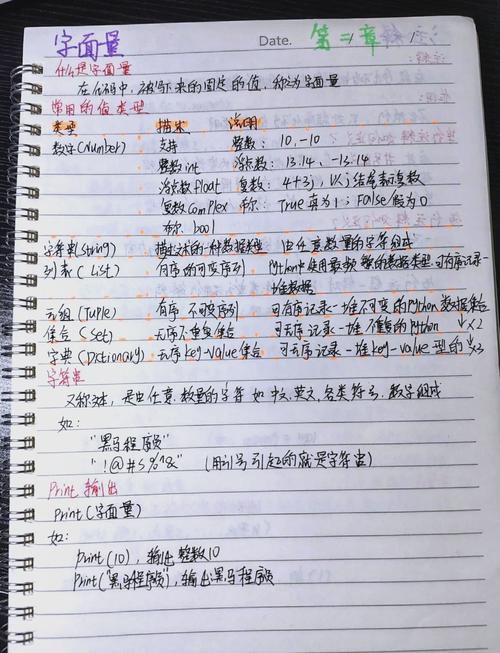 字面量 Date. 第二章
什么是字面量
在代码中,被写下来的固定的值,称之为字面量
常用的值类型
类型 描述 说明
数字(Number) 支持 整数: 10,-10
整数int 浮点数: 13.14, -13.14
浮点数float 复数: 4+3j, 以j结尾表示复数
复数complex 布尔: True真为1; False假为0
布尔 bool
字符串(String) 描述文本的一种数据类型 由任意数量的字符组成
列表(List) 有序的可变序列 Python中使用最频繁的数据类型,可有序记录一
堆数据
元组(Tuple) 有序不可变序列 可有序记录一堆不可变的Python数据集合
集合(Set) 无序不重复集合 可无序记录一堆不重复的Python ↓×2
字典(Dictionary) 无序key-value集合 可无序记录一堆key-value型的 ↓×3
字符串
又称文本,是由任意数量的字符 如中文,英文,各类符号,数字组成
如:
"黑马程序员"
"!@#$%^&" (用引号引起的就是字符串)
Print 输出
Print(字面量)
如:
print(10),输出整数10
Print("黑马程序员"),输出黑马程序员